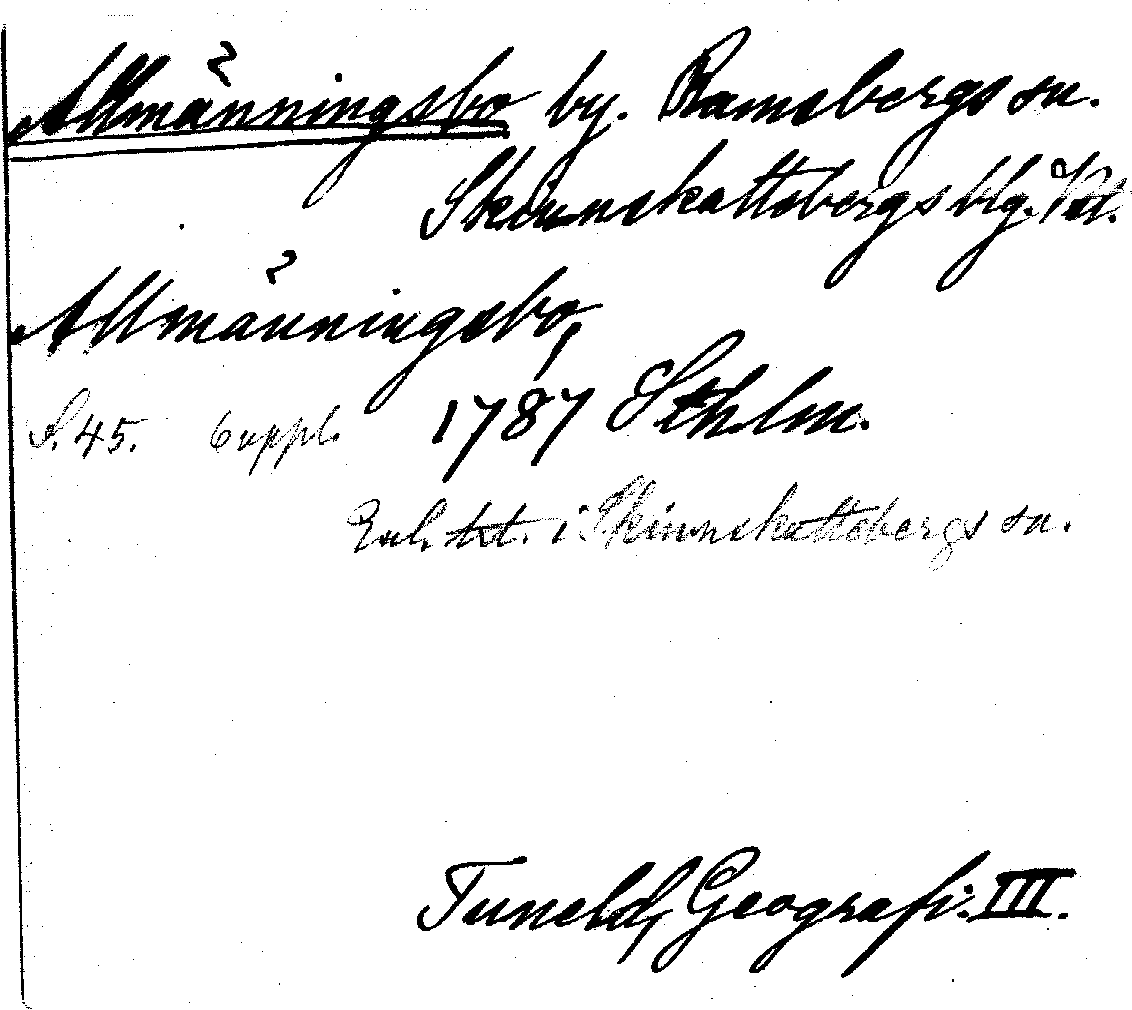 Allmänningsbo by. Ramsbergs sn.
Skinnskattebergs blg. Vst.
Allmänningsbo,
S. 45. 6 uppl. 1787 Sthlm.
Enl. txt. i Skinnskattebergs sn.
Tuneld, Geografi: III.